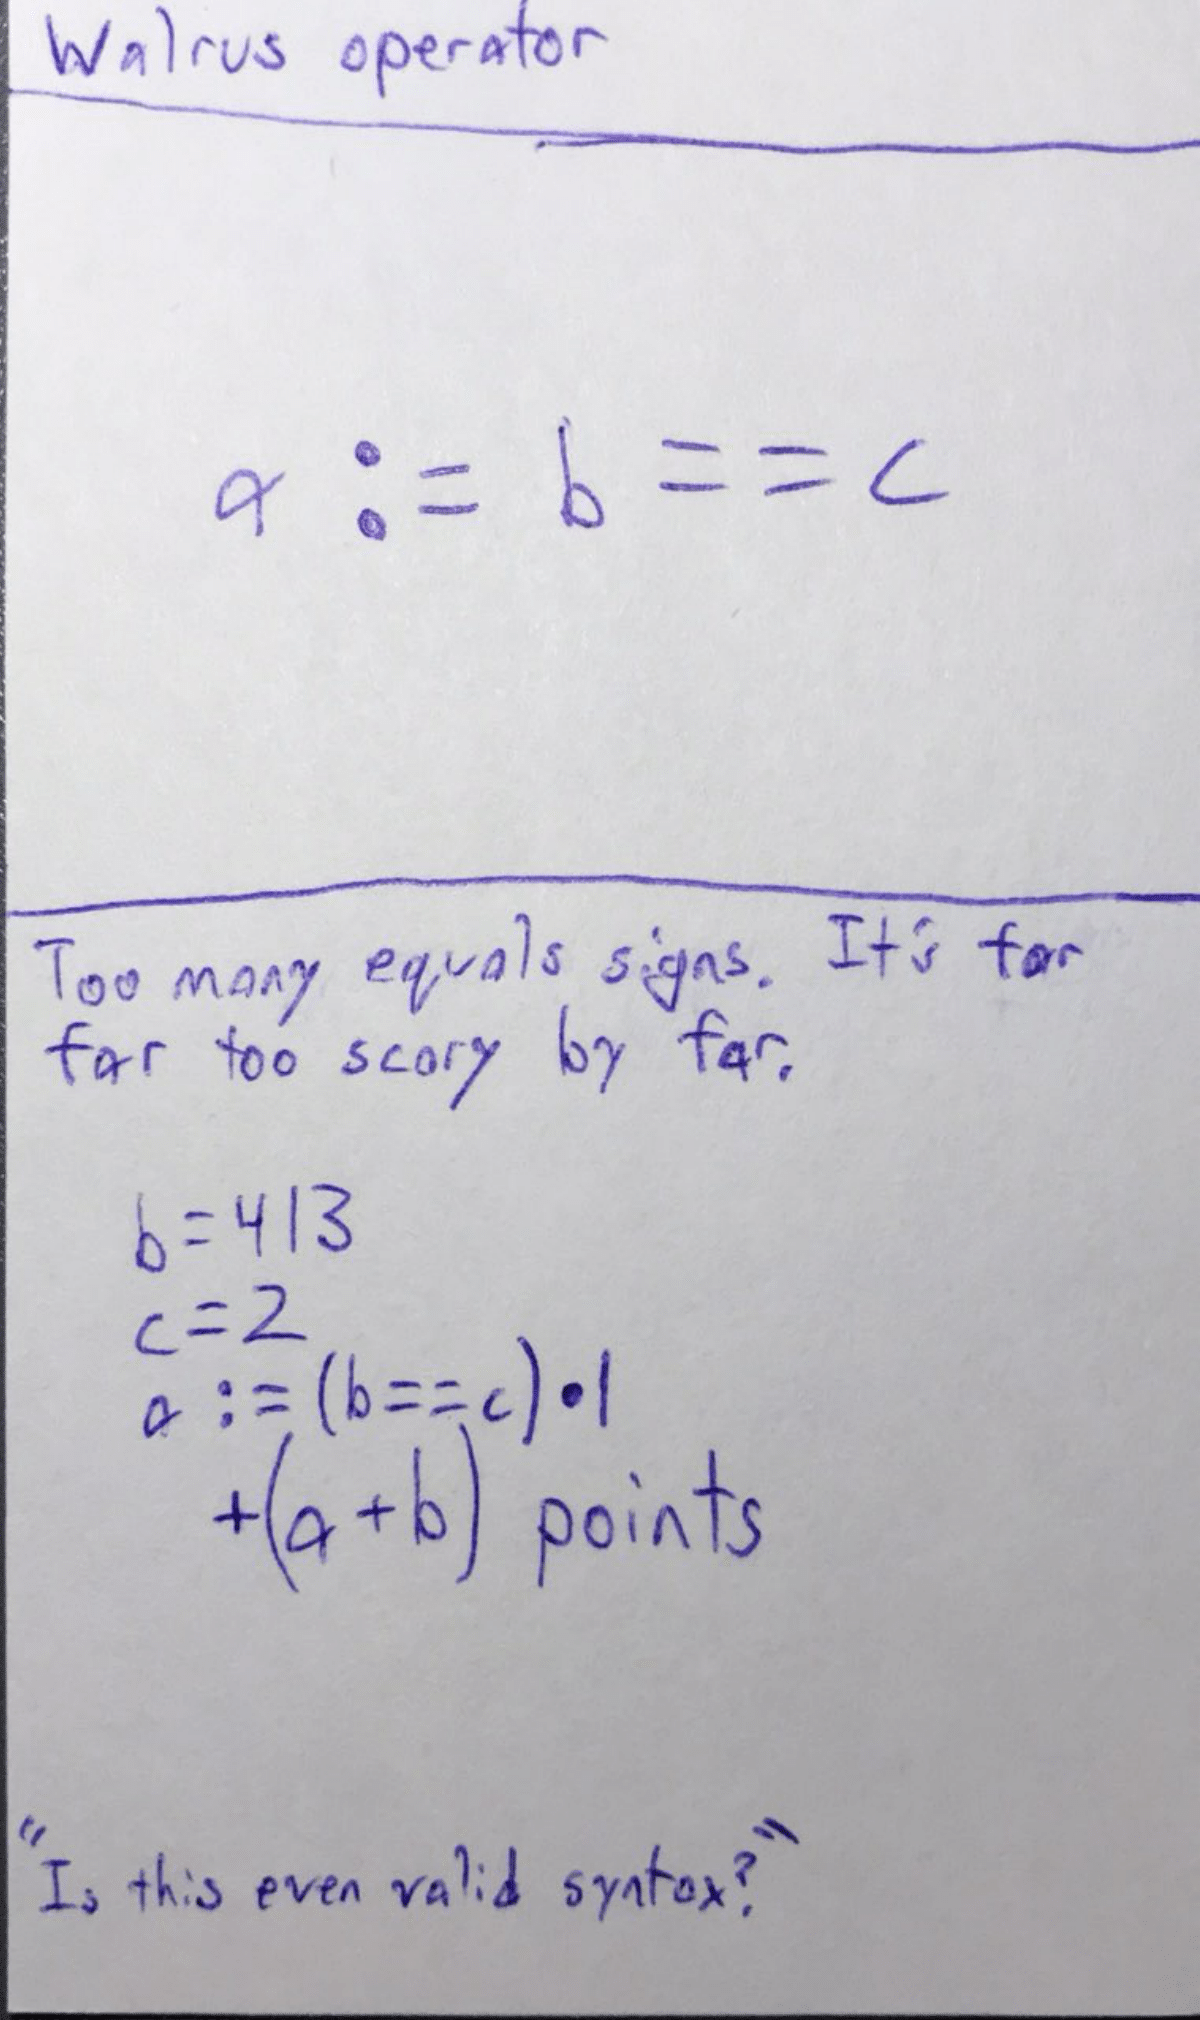 Walrus operator
a := b == c
Too many equals signs. It's far
far too scary by far.
b=413
c=2
a := (b==c)•1
+(a+b) points
"Is this even valid syntax?"